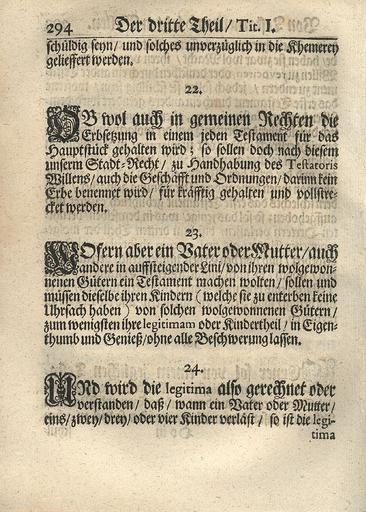 294 Der dritte Theil/ Tit. I.
schüldig seyn/ und solches unverzüglich in die Khemerey
gelieffert werden.
22.
OB wol auch in gemeinen Rechten die
Erbsetzung in einem jeden Testament für das
Hauptstück gehalten wird; so sollen doch nach diesem
unserm Stadt-Recht/ zu Handhabung des Testatoris
Willens/ auch die Geschäfft und Ordnungen/ darinn kein
Erbe benennet wird/ für kräfftig gehalten und vollstre-
cket werden.
23.
WOfern aber ein Vater oder Mutter/ auch
andere in auffsteigender Lini/ von ihren wolgewon-
nenen Gütern ein Testament machen wolten/ sollen und
müssen dieselbe ihren Kindern (welche sie zu enterben keine
Uhrsach haben) von solchen wolgewonnenen Gütern/
zum wenigsten ihre legitimam oder Kindertheil/ in Eigen-
thumb und Genieß/ ohne alle Beschwerung lassen.
24.
UNd wird die legitima also gerechnet oder
verstanden/ daß/ wann ein Vater oder Mutter/
eins/ zwey/ drey/ oder vier Kinder verläst/ so ist die legi-
tima